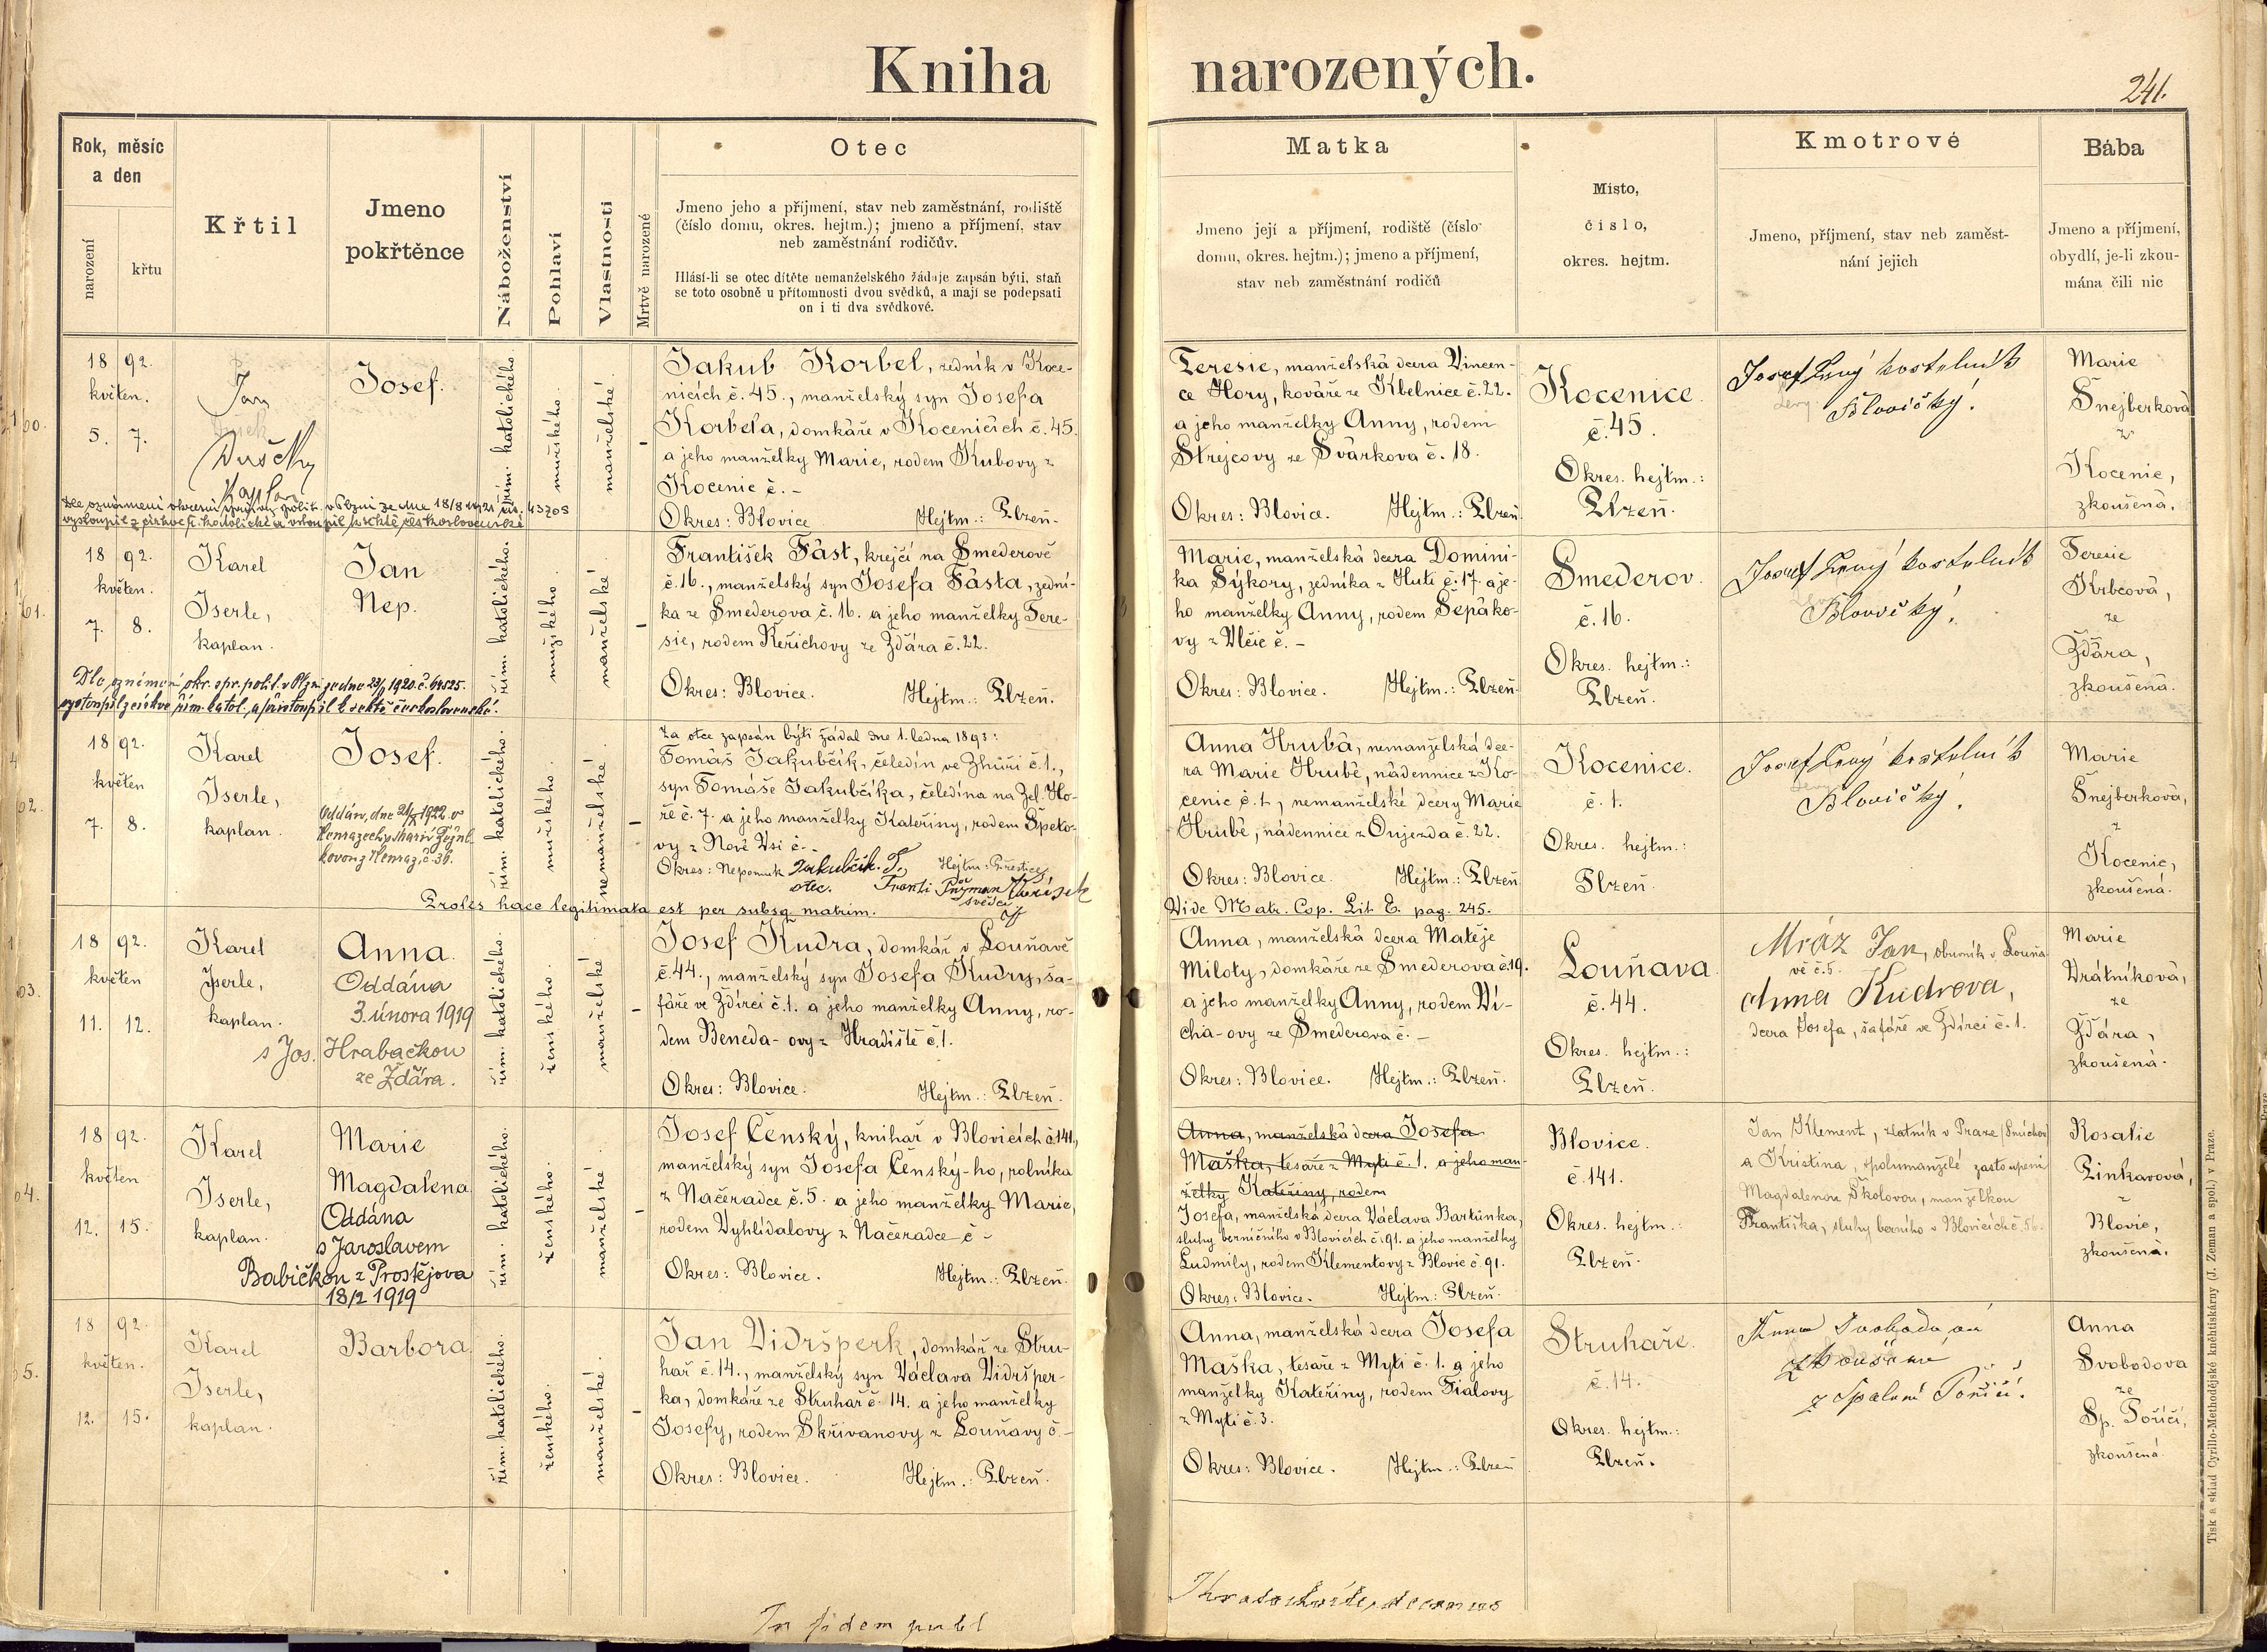 Kniha narozených.
241.
Rok, měsíc
a den
narození
křtu
Křtil
Jmeno
pokřtěnce
Náboženství
Pohlaví
Vlastnosti
Mrtvě narozené
Otec
Jmeno jeho a příjmení, stav neb zaměstnání, rodiště
(číslo domu, okres. hejtm.); jmeno a příjmení, stav
neb zaměstnání rodičův.
Hlásí-li se otec dítěte nemanželského žádaje zapsán býti, staň
se toto osobně u přítomnosti dvou svědků, a mají se podepsati
on i ti dva svědkové.
Matka
Jmeno její a příjmení, rodiště (číslo
domu, okres. hejtm.); jmeno a příjmení,
stav neb zaměstnání rodičů
Místo,
číslo,
okres. hejtm.
Kmotrové
Jmeno, příjmení, stav neb zaměst-
nání jejich
Bába
Jmeno a příjmení,
obydlí, je-li zkou-
mána čili nic
60.
18 92.
květen.
5. 7.
Jan
Dušek
kaplan
Josef.
řím. katolického.
mužského.
manželské.
Jakub Korbel, zedník v Koce-
nicích č. 45., manželský syn Josefa
Korbela, domkáře v Kocenicích č. 45.
a jeho manželky Marie, rodem Kubovy z
Kocenic č. -
Okres: Blovice. Hejtm.: Plzeň.
Teresie, manželská dcera Vincen-
ce Hory, kováře ze Kbelnice č. 22.
a jeho manželky Anny, rodem
Strejcovy ze Svárkova č. 18.
Okres: Blovice. Hejtm.: Plzeň.
Kocenice
č. 45.
Okres. hejtm.:
Plzeň.
Josef Levý kostelník
Blovičký.
Marie
Šnejberková
z
Kocenic,
zkoušená.
Dle oznámení okresní správy polit. v Plzni ze dne 18/8 1921 čís. 43708
vystoupil z církve ř. katolické a vstoupil k sektě československé
61.
18 92.
květen.
7. 8.
Karel
Iserle,
kaplan.
Jan
Nep.
řím. katolického.
mužského.
manželské
František Fást, krejčí na Smederově
č. 16., manželský syn Josefa Fásta, zední-
ka ze Smederova č. 16. a jeho manželky Tere-
sie, rodem Keřichovy ze Ždára č. 22.
Okres: Blovice. Hejtm.: Plzeň.
Marie, manželská dcera Domini-
ka Sýkory, zedníka z Hutí č. 17. a je-
ho manželky Anny, rodem Šepáko-
vy z Vlčic č. -
Okres: Blovice. Hejtm.: Plzeň.
Smederov.
č. 16.
Okres. hejtm.:
Plzeň.
Josef Levý kostelník
Blovičký.
Teresie
Krbcová,
ze
Ždára,
zkoušená.
Dle oznámení okr. spr. polit. v Plzni ze dne 1920. č. 64525.
vystoupil z církve řím. katol. a přistoupil k sektě československé.
62.
18 92.
květen
7. 8.
Karel
Iserle,
kaplan.
Josef.
Oddán, dne 1922 v
řím. katolického.
mužského.
nemanželské
Za otce zapsán býti žádal dne 1. ledna 1893:
Tomáš Jakubčík, čeledín ve Zhůři č. 1.,
syn Tomáše Jakubčíka, čeledína na Zel. Ho-
ře č. 7. a jeho manželky Kateřiny, rodem Špeto-
vy z Nové Vsi č. -
Okres: Nepomuk Hejtm.: Přeštice
Jakubčík. T.,
otec.
svědci
Proles haec legitimata est per subsq. matrim.
Anna Hrubá, nemanželská dce-
ra Marie Hrubé, nádennice z Ko-
cenic č. 1., nemanželské dcery Marie
Hrubé, nádennice z Oujezda č. 22.
Okres: Blovice. Hejtm.: Plzeň.
Vide Matr. Cop. Lit E. pag. 245.
Kocenice.
č. 1.
Okres. hejtm.:
Plzeň.
Josef Levý kostelník
Blovičký.
Marie
Šnejberková,
z
Kocenic,
zkoušená.
63.
18 92.
květen
11. 12.
Karel
Iserle,
kaplan.
Anna.
Oddána
3. února 1919
s Jos. Hrabačkou
ze Ždára.
řím. katolického.
ženského.
manželské
Josef Kudra, domkář v Louňavě
č. 44., manželský syn Josefa Kudry, ša-
fáře ve Ždírci č. 1. a jeho manželky Anny, ro-
dem Beneda-ovy z Hradiště č. 1.
Okres: Blovice. Hejtm.: Plzeň.
Anna, manželská dcera Matěje
Miloty, domkáře ze Smederova č. 19.
a jeho manželky Anny, rodem Ví-
cha-ovy ze Smederova č. -
Okres: Blovice. Hejtm.: Plzeň.
Louňava
č. 44.
Okres. hejtm.:
Plzeň.
Mráz Jan, oburník v Louňa-
vě č. 5.
Anna Kudrova,
dcera Josefa, šafáře ve Ždírci č. 1.
Marie
Vrátníková,
ze
Ždára,
zkoušená.
64.
18 92.
květen
12. 15.
Karel
Iserle,
kaplan.
Marie
Magdalena
Oddána
s Jaroslavem
Babičkou z Prostějova
18/2 1919
řím. katolického.
ženského.
manželské.
Josef Čenský, knihař v Blovicích č. 141.,
manželský syn Josefa Čenský-ho, rolníka
z Načeradce č. 5. a jeho manželky Marie,
rodem Vyhlídalovy z Načeradce č -
Okres: Blovice. Hejtm.: Plzeň.
Anna, manželská dcera Josefa
Maška, tesaře z Mýtí č. 1. a jeho man-
želky Kateřiny, rodem
Josefa, manželská dcera Václava Bartůnka,
sluhy berničního v Blovicích č. 91. a jeho manželky
Ludmily, rodem Klementovy z Blovic č. 91.
Okres: Blovice. Hejtm.: Plzeň.
Blovice.
č. 141.
Okres. hejtm.:
Plzeň.
Jan Klement, zlatník v Praze (Smíchov)
a Kristina, spolumanželé zastoupeni
Magdalenou Školovou, manželkou
Františka, sluhy berního v Blovicích č. 56.
Rosalie
Pinkavová,
z
Blovic,
zkoušená.
65.
18 92.
květen.
12. 15.
Karel
Iserle,
kaplan.
Barbora
řím. katolického.
ženského.
manželské.
Jan Vidršperk, domkář ze Stru-
hař č. 14., manželský syn Václava Vidršper-
ka, domkáře ze Struhař č. 14. a jeho manželky
Josefy, rodem Skřivanovy z Louňavy č. -
Okres: Blovice. Hejtm.: Plzeň.
Anna, manželská dcera Josefa
Maška, tesaře z Mýtí č. 1. a jeho
manželky Kateřiny, rodem Fialovy
z Mýtí č. 3.
Okres: Blovice. Hejtm.: Plzeň
Struhaře.
č. 14.
Okres. hejtm.:
Plzeň.
Anna Svobodová
zkoušená
z Spálené Poříčí.
Anna
Svobodova
ze
Sp. Poříčí,
zkoušená
In fidem publ
Tisk a sklad Cyrillo-Methodějské knihtiskárny (J. Zeman a spol.) v Praze.